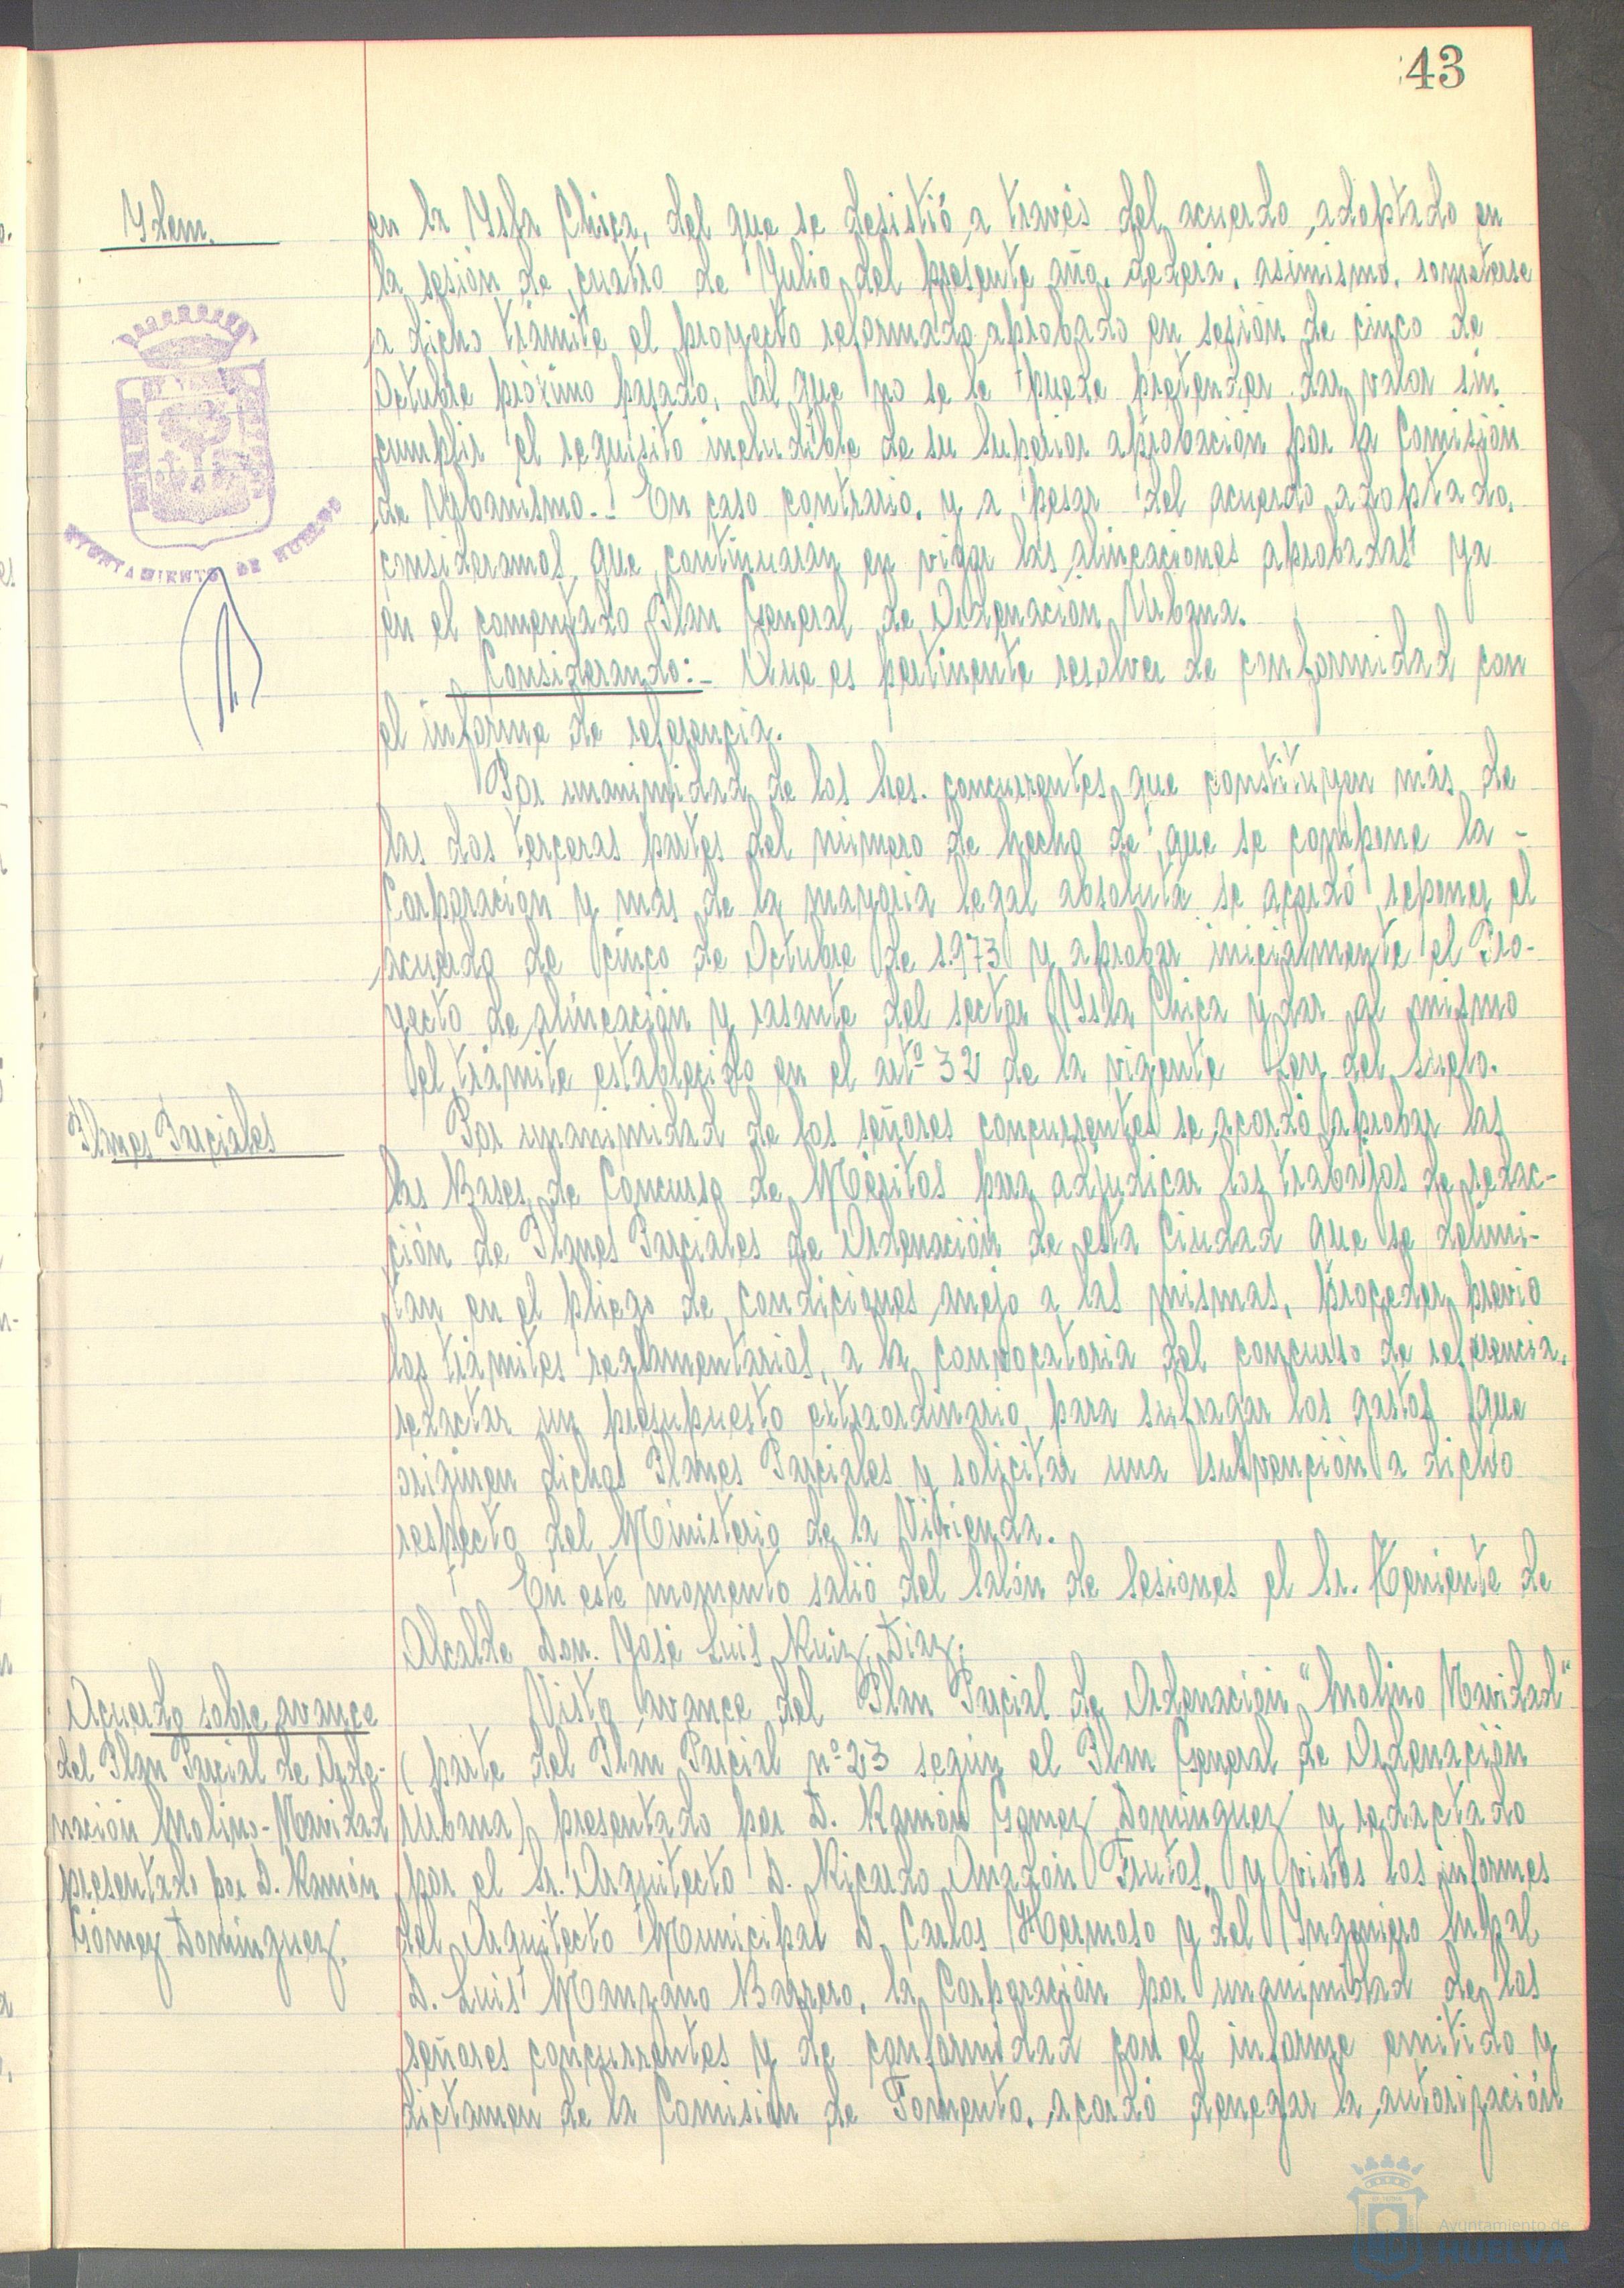 43
Ydem.
en la Ysla Chica, del que se desistió a través del acuerdo adoptado en
la sesión de cuatro de Julio del presente año, deberá, asimismo, someterse
a dicho trámite el proyecto reformado aprobado en sesión de cinco de
Octubre próximo pasado, al que no se le puede pretender dar valor sin
cumplir el requisito ineludible de su superior aprobación por la Comisión
de Urbanismo.- En caso contrario, y a pesar del acuerdo adoptado,
consideramos que continuarán en vigor las alineaciones aprobadas ya
en el comentado Plan General de Ordenación Urbana.
Considerando:- Que es pertinente resolver de conformidad con
el informe de referencia.
Por unanimidad de los Sres. concurrentes, que constituyen más de
las dos terceras partes del número de hecho de que se compone la -
Corporación y más de la mayoria legal absoluta se acordó reponer el
acuerdo de cinco de Octubre de 1.973 y aprobar inicialmente el Pro-
yecto de alineación y rasante del sector Ysla Chica y dar al mismo
el trámite establecido en el artº 32 de la vigente Ley del Suelo.
Planes Parciales
Por unanimidad de los señores concurrentes se acordó aprobar las
las Bases de Concurso de Méritos para adjudicar los trabajos de redac-
ción de Planes Parciales de Ordenación de esta Ciudad que se delimi-
tan en el pliego de condiciones anejo a las mismas, proceder, previo
los trámites reglamentarios, a la convocatoria del concurso de referencia,
redactar un presupuesto extraordinario, para sufragar los gastos que
originen dichos Planes Parciales y solicitar una subvención a dicho
respecto del Ministerio de la Vivienda.
En este momento salió del Salón de Sesiones el Sr. Teniente de
Alcalde Don. José Luis Ruiz Diaz.
Acuerdo sobre avance
del Plan Parcial de Orde-
nación Molino-Navidad
presentado por D. Ramón
Gómez Dominguez.
Visto avance del Plan Parcial de Ordenación "Molino Navidad"
(parte del Plan Parcial nº 23 según el Plan General de Ordenación
Urbana) presentado por D. Ramón Gomez Dominguez y redactado
por el Sr. Arquitecto D. Ricardo Anadón Frutos, y vistos los informes
del Arquitecto Municipal D. Carlos Hermoso y del Yngeniero Mpal
D. Luis Manzano Barrero, la Corporación por unanimidad de los
señores concurrentes y de conformidad con el informe emitido y
dictamen de la Comisión de Fomento, acordó denegar la autorización
AYUNTAMIENTO DE HUELVA
Ayuntamiento de
HUELVA